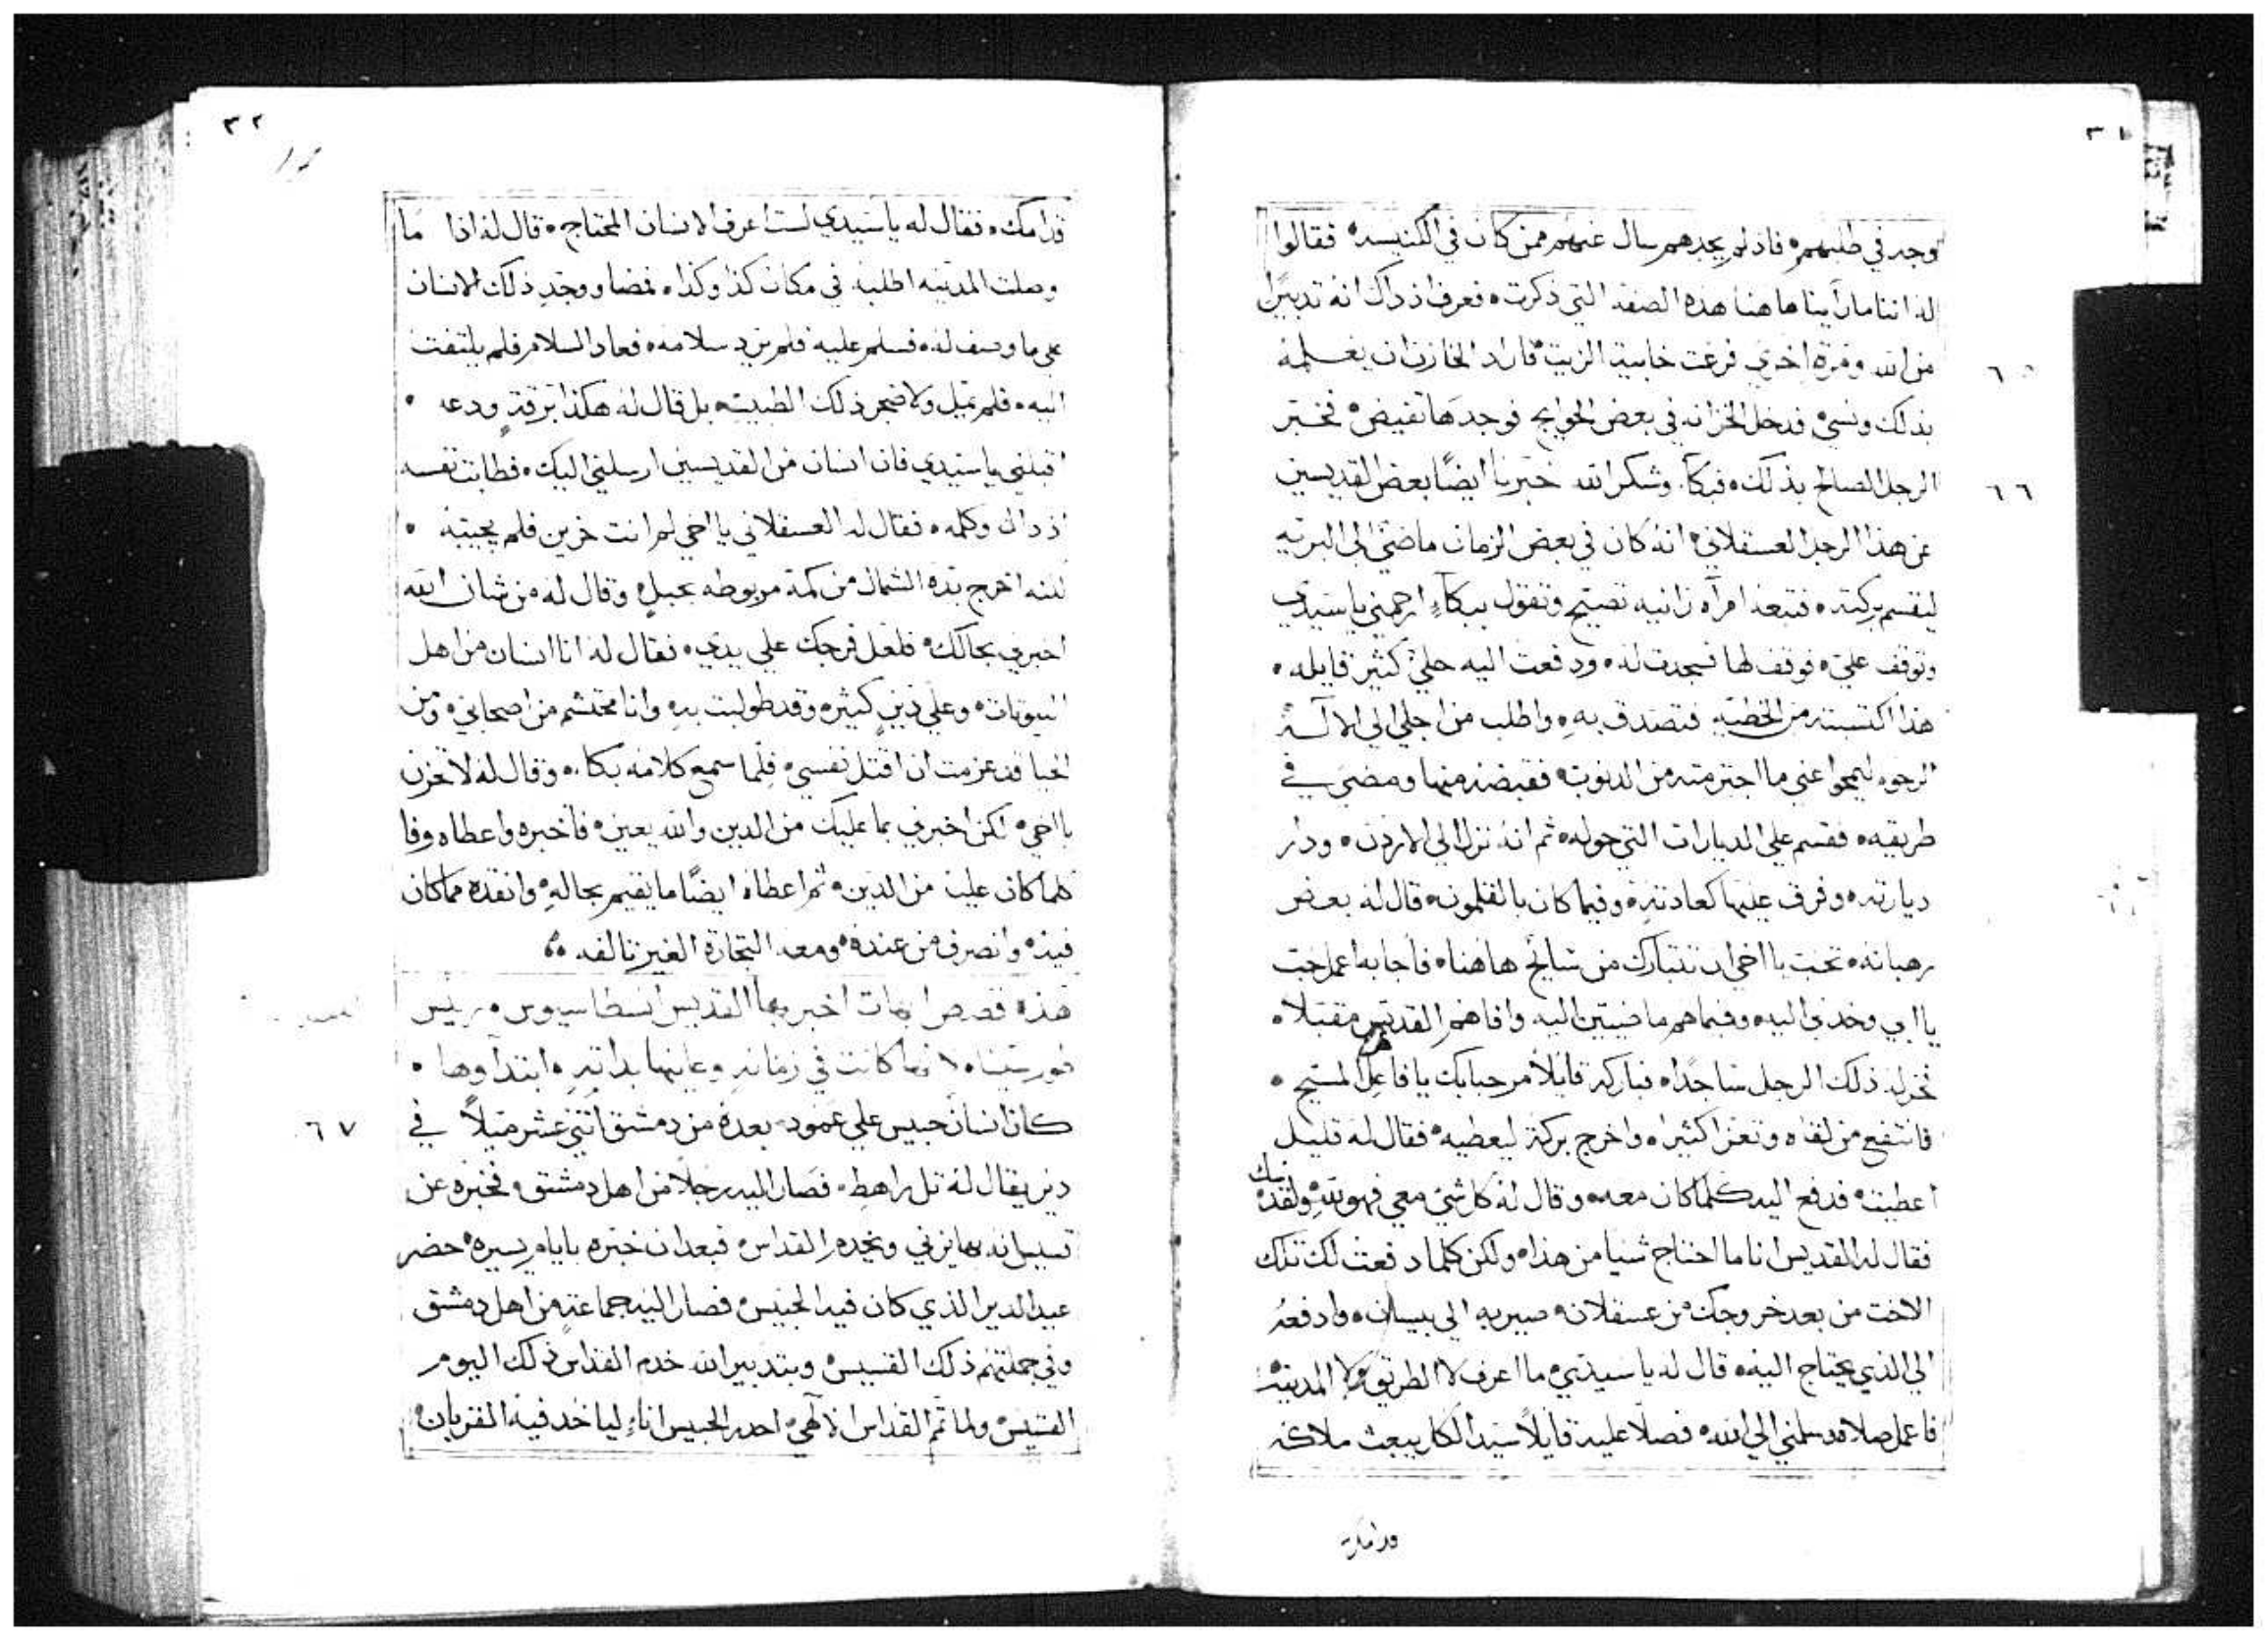 وجد في طلبهم فاذ لم يجدهم سال عنهم ممن كان في الكنيسه فقالوا
له اننا ما رآينا هاهنا هذه الصفه التي ذكرت فعرف اذ داك انه تدبيرًا
من الله ومرة اخري فرغت خابية الزيت فاراد الخازن ان يعلمه
بذلك ونسي فدخل الخزانه في بعض الحوايج فوجدها تفيض فخبر
الرجل الصالح بذلك فبكا وشكر الله خبرنا ايضًا بعض القديسين
٦٦
عن هذا الرجل العسقلاني انه كان في بعض الزمان ماضي الي البريه
ليقسم بركته فتبعه امرآه زانيه تصيح وتقول ببكاءٍ ارحمني يا سيدي
وتوقف علي فوقف لها فسجدت له ودفعت اليه حلي كثير قايله
هذا اكتسبته من الخطيه فتصدق به واطلب من اجلي الي الاله
ليمحوا عني ما اجترمته من الدنوب فقبضه منها ومضي في
طريقه فقسم علي الديارات التي حوله ثم انه نزل الي الاردن ودار
دياراته وفرق عليها كعادته وفيما كان بالقلمون قال له بعض
رهبانه تحب يا اخي ان تتبارك من سايح هاهنا فاجابه اعمل حب
يا ابي وخدني اليه وفيما هم ماضيين اليه وافاهم القديس مقبلا
فخر له ذلك الرجل ساجدًا فباركه قايلاً مرحبا بك يا فاعل المسيح
فانتفع من لقاه وتعزا كثيرا واخرج بركة ليعطيه فقال له قليل
اعطيت فدفع اليه كلما كان معه وقال له كل شي معي فهو لله ولقدسك
فقال له القديس انا ما احتاج شيا من هذا ولكن كلما دفعت لك تلك
الاخت من بعد خروجك من عسقلان صير به الي بيسان وادفعه
الي الذي يحتاج اليه قال له يا سيدي ما اعرف لا الطريق ولا المدينه
فاعمل صلاه وسلمني الي الله فصلا عليه قايلاً سيد الكل يبعث ملاكه
قدامك
٣٢
قدامك فقال له يا سيدي لست اعرف الانسان المحتاج قال له اذا ما
وصلت المدينه اطلبه في مكان كذا وكذا فمضا ووجد ذلك الانسان
علي ما وصف له فسلم عليه فلم يرد سلامه فعاد السلام فلم يلتفت
اليه فلم يمل ولا ضجر ذلك الطبيب بل قال له هكذا برقةٍ ودعه
اقبلني يا سيدي فان انسان من القديسين ارسلني اليك فطابت نفسه
اذ داك وكلمه فقال له العسقلاني يا اخي لم انت حزين فلم يجيبه
لكنه اخرج يده الشمال من كمه مربوطه بحبلٍ وقال له من شان الله
اخبرني بحالك فلعل فرجك علي يدي فقال له انا انسان من اهل
البيوتات وعلي دينٍ كثيره وقد طولبت بهِ وانا محتشم من اصحابي ومن
الحيا قد عزمت ان اقتل نفسي فلما سمع كلامه بكا وقال له لا تحزن
يا اخي لكن اخبرني بما عليك من الدين والله يعين فاخبره واعطاه وفا
كلما كان عليه من الدين ثم اعطاه ايضًا ما يقيم بحالهِ وانقده مما كان
فيه وانصرف من عنده ومعه التجارة الغير تالفه
هذه قصص ابهات اخبر بها القديس انسطاسيوس ريس
طورسينا لانها كانت في زمانه وعاينها بداته ابتداوها
٦٧
كان انسان حبيس علي عمود بعده من دمشق اثني عشر ميلاً في
دير يقال له تل راهط فصار اليه رجلاً من اهل دمشق فخبره عن
قسيس انه يزني ويخدم القداس فبعد ان خبره بايام يسيره حضر
عيد الدير الذي كان فيه الحبيس فصار اليه جماعة من اهل دمشق
وفي جملتهم ذلك القسيس وبتدبير الله خدم القداس ذلك اليوم
القسيس ولما تم القداس الالهي احدر الحبيس اناءٍ لياخد فيه القربان